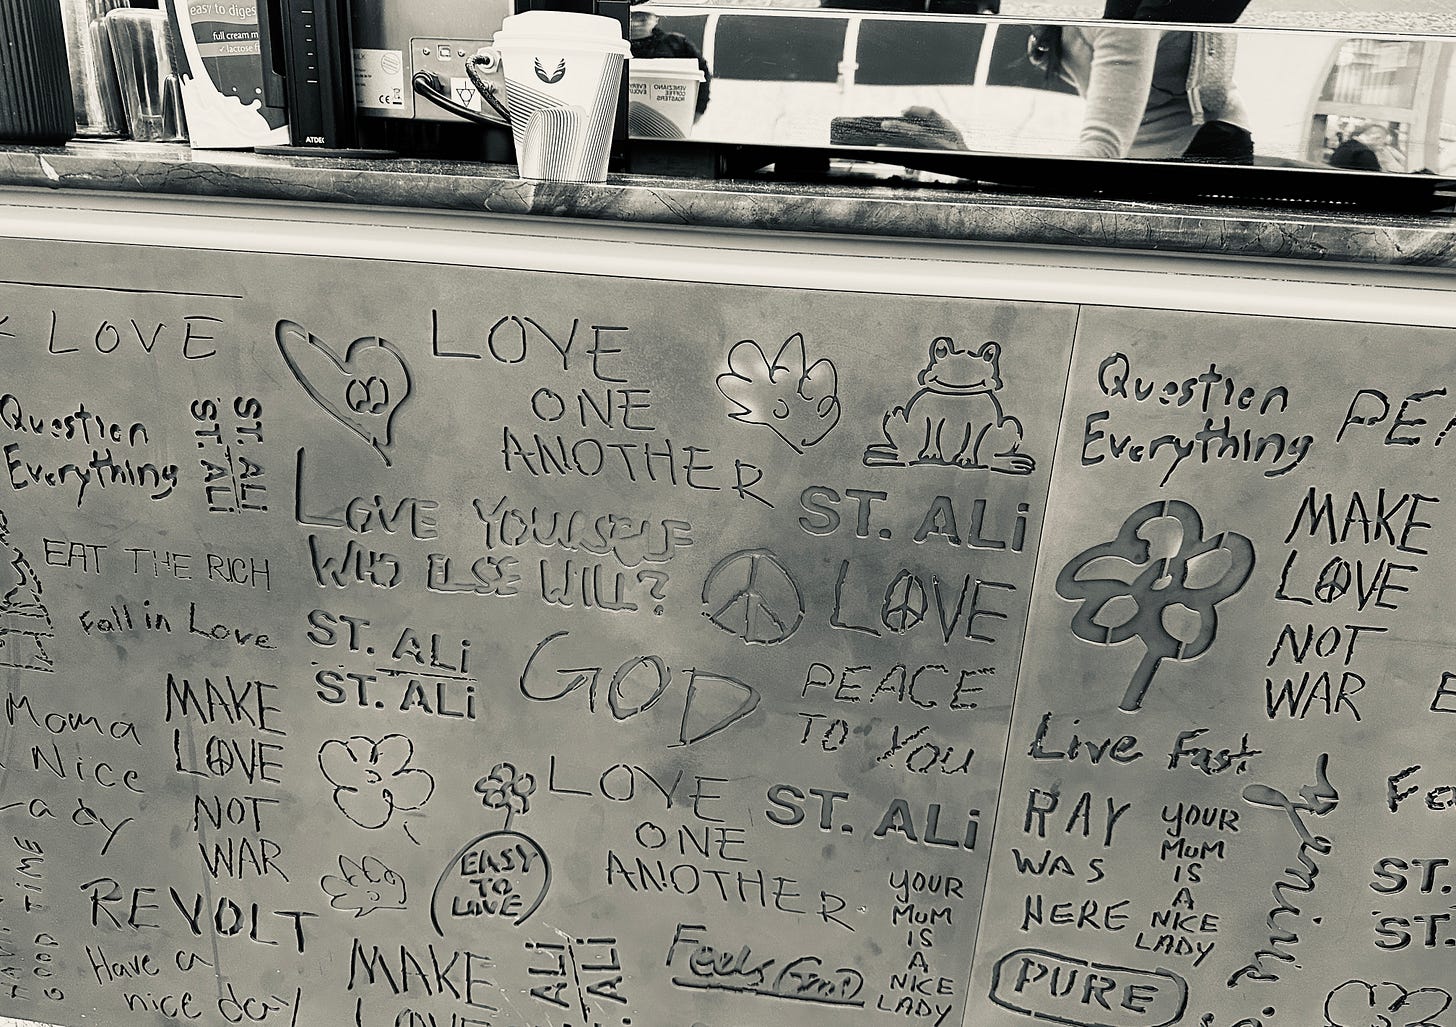 easy to diges
full cream m
✓ lactose f
ATDEC
CE
VENEZIANO
COFFEE
ROASTERS
LOVE
Question
Everything
ST. ALi
ST. ALi
EAT THE RICH
Fall in Love
Moma
Nice
Lady
MAKE
LOVE
NOT
WAR
REVOLT
GOOD TIME
Have a
nice day
LOVE
ONE
ANOTHER
LOVE YOURSELF
WHO ELSE WILL?
ST. ALi
ST. ALi
GOD
EASY
TO
LOVE
LOVE
ONE
ANOTHER
MAKE
LOVE
ALi
ALi
Feels Good
ST. ALi
LOVE
PEACE
TO YOU
ST. ALi
YOUR
MUM
IS
A
NICE
LADY
Question
Everything
PE
MAKE
LOVE
NOT
WAR
Live Fast
RAY
WAS
HERE
YOUR
MUM
IS
A
NICE
LADY
PURE
Fe
ST.
ST.